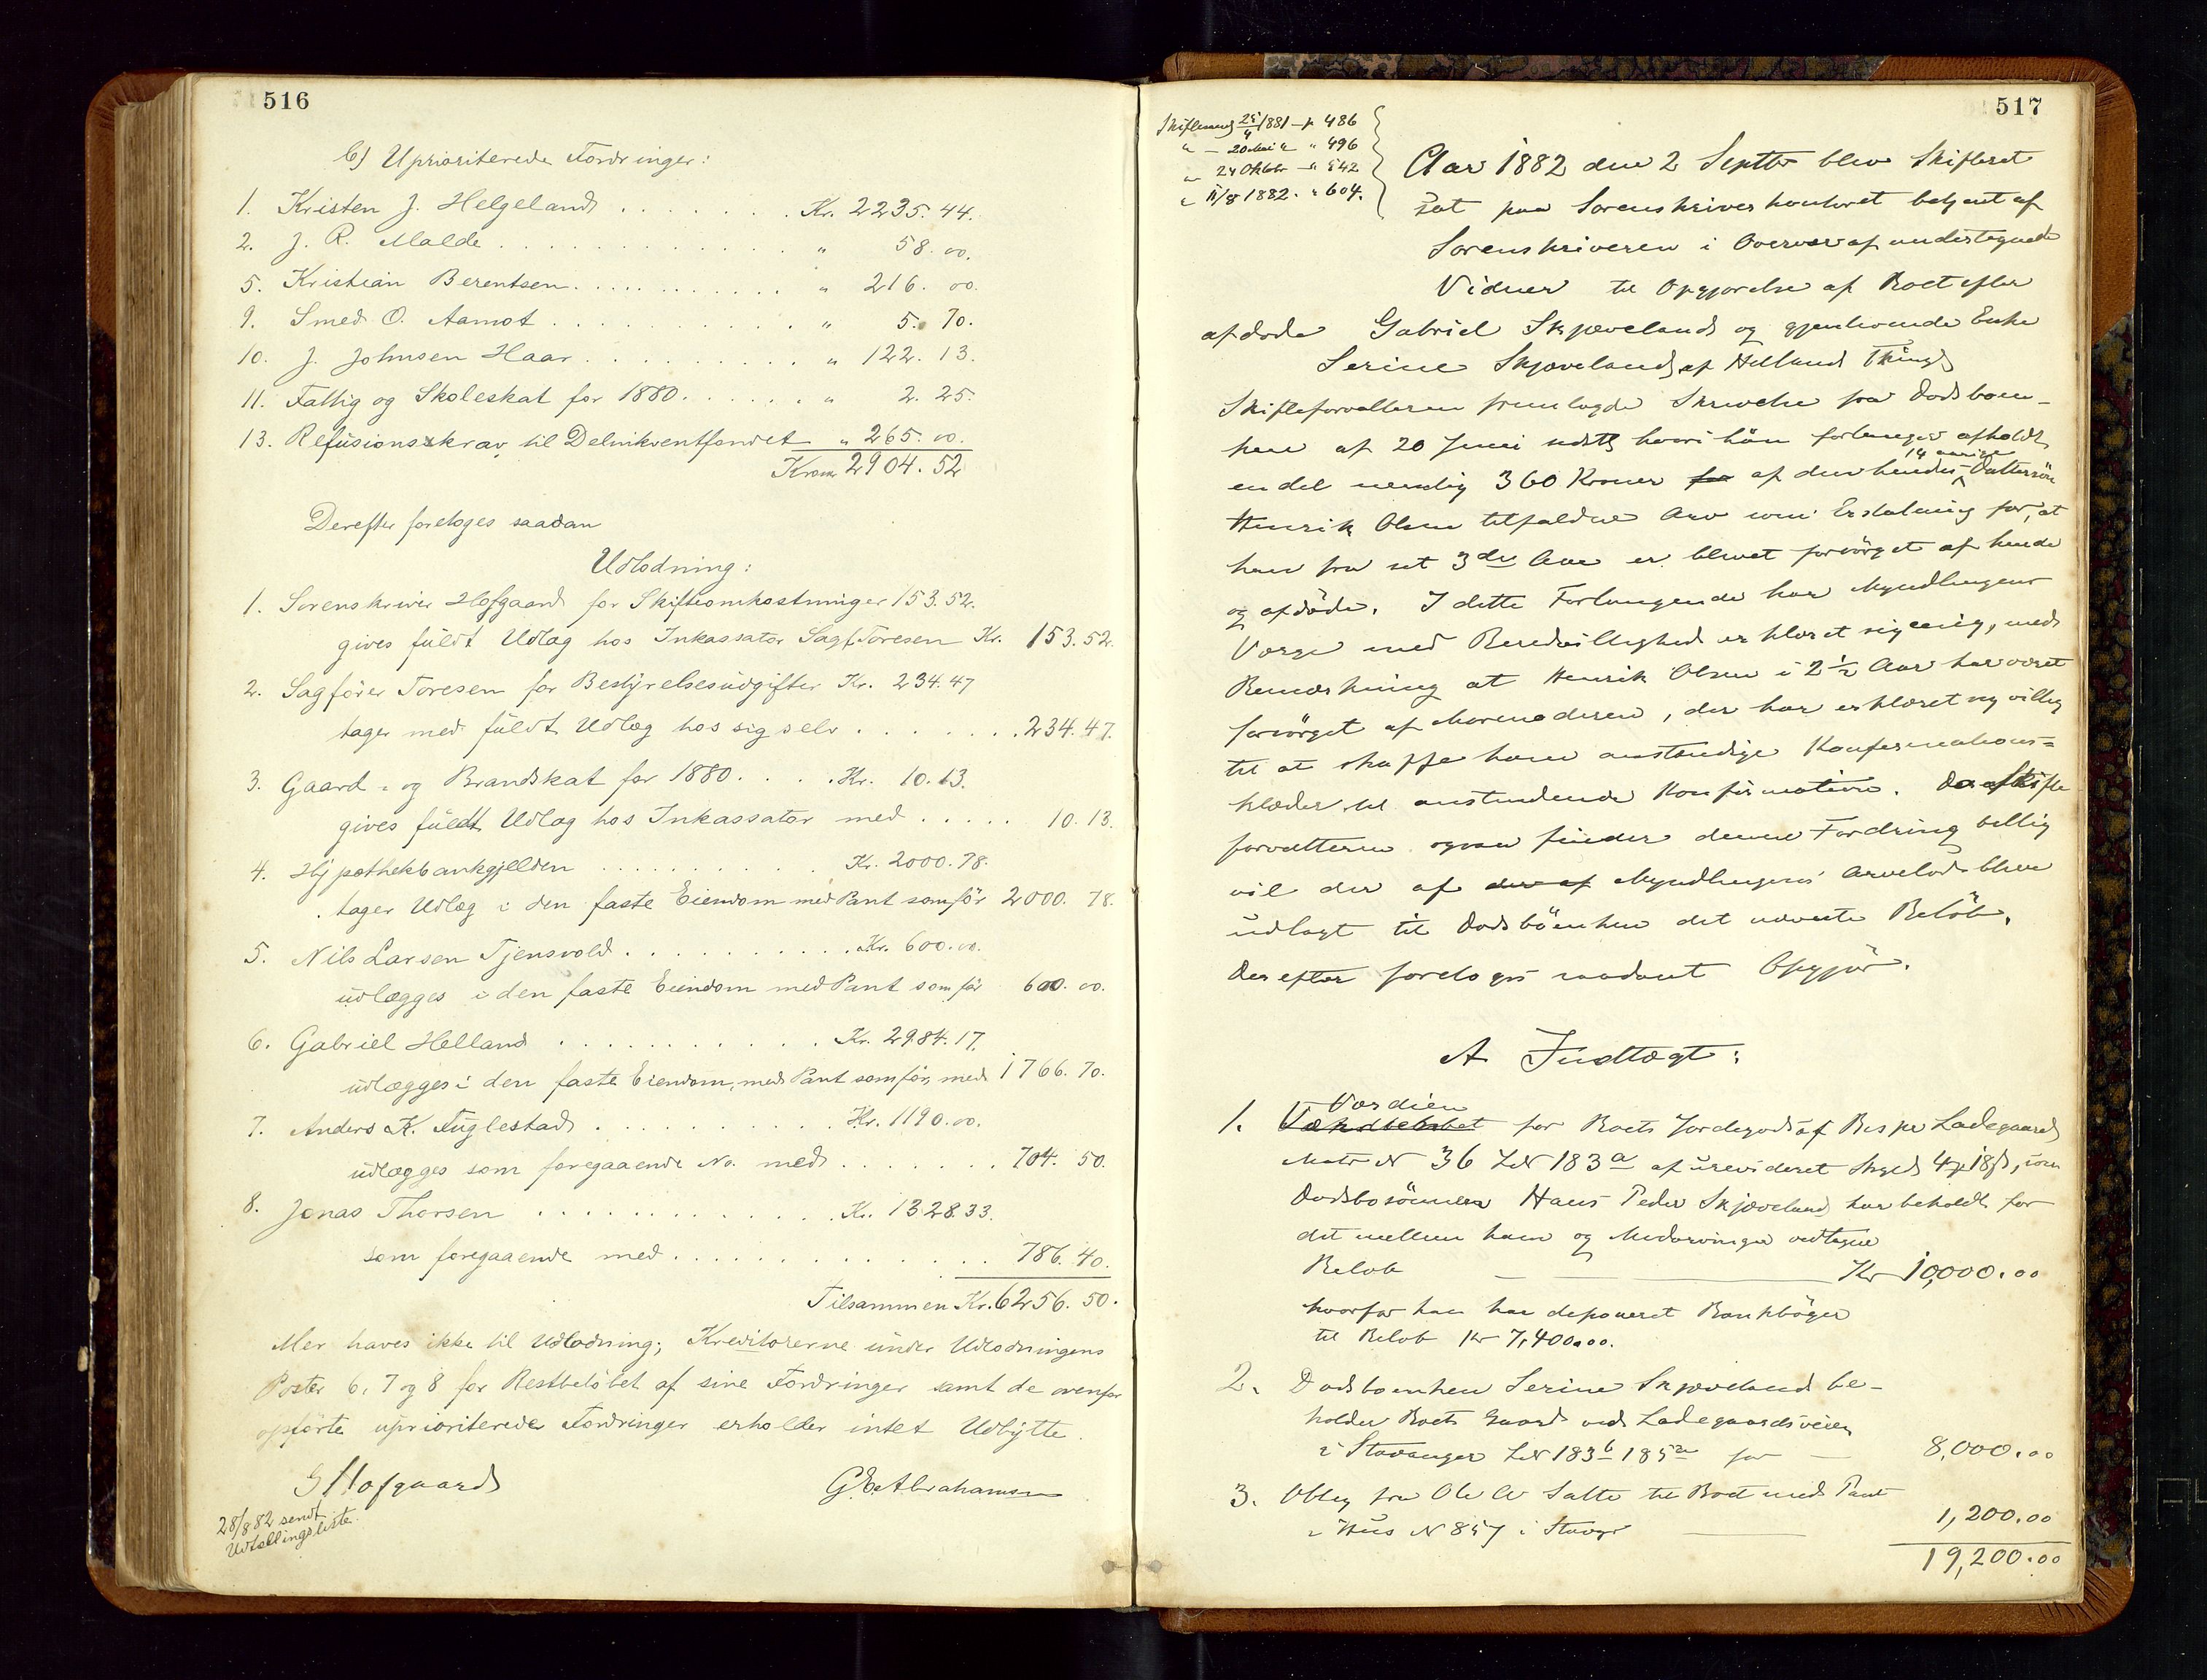 516
b) Uprioriterede Fordringer:
1. Kristen J. Helgeland . . . . . . . Kr. 2235. 44.
2. J. R. Malde . . . . . . . . . . . . . " 58. 00.
5. Kristian Berentsen . . . . . . . . . . . " 216. 00.
9. Smed O. Aamot . . . . . . . . . . . . " 5. 70.
10. J. Johnsen Haar . . . . . . . . . . " 122. 13.
11. Fattig og Skoleskat for 1880 . . . . . . " 2. 25.
13. Refusionskrav til Delinkventfondet " 265. 00.
Kroner 2904. 52
Derefter foretoges saadan
Udlodning:
1. Sorenskriver Hofgaard for Skifteomkostninger 153. 52.
gives füldt Udlæg hos Inkassator Sagf. Toresen Kr. 153. 52.
2. Sagfører Toresen for Bestyrelsesudgifter Kr. 234. 47
tager med füldt Udlæg hos sig selv . . . . . . . 234. 47.
3. Gaard- og Brandskat for 1880 . . . . Kr. 10. 13.
gives füldt Udlæg hos Inkassator med . . . . . 10. 13.
4. Hypothekbankgjelden . . . . . . . . . . Kr. 2000. 78.
tager Udlæg i den faste Eiendom med Pant som før 2000. 78.
5. Nils Larsen Tjensvold . . . . . . . . . . Kr. 600. 00.
udlægges i den faste Eiendom med Pant som før 600. 00.
6. Gabriel Helland . . . . . . . . . . . Kr. 2984. 17.
udlægges i den faste Eiendom, med Pant som før, med 1766. 70.
7. Anders K. Fuglestad . . . . . . . . . . Kr. 1190. 00.
udlægges som foregaaende No. med . . . . . . . 704. 50.
8. Jonas Thorsen . . . . . . . . . . . . Kr. 1328. 33.
som foregaaende med . . . . . . . . . . . . . 786. 40.
Tilsammen Kr. 6256. 50.
Mer haves ikke til Udlodning; Kreditorerne under Udlodningens
Poster 6, 7 og 8 for Restbeløbet af sine Fordringer samt de ovenfor
opførte uprioriterede Fordringer erholder intet Udbytte.
G Hofgaard G. E. Abrahamsen
28/8 82 sendt
Udtællingsliste.
517
Skiftesamlg 25/4 1881 – p 486
" – 20 Mai " " 496
" – 24 Oktbr – " 542
" 11/8 1882. " 604.
Aar 1882 den 2 Septbr blev Skifteret
sat paa Sorenskriverkontoret betjent af
Sorenskriveren i Overvær af undertegnede
Vidner til Opgjørelse af Boet efter
afdøde Gabriel Skjæveland og gjenlevende Enke
Serine Skjæveland af Hetland Thinglg
Skifteforvalteren fremlagde Skrivelse fra Dødsboen-
ken af 20 Juni sidstl hvori hun forlanger afholdt
14 aarige
en del nemlig 360 Kroner for af den hendes Dattersön
Henrik Olsen tilfaldne Arv som Erstatning for, at
han fra sit 3de Aar er blevet forsörget af hende
og afdöde. I dette Forlangende har Myndlingens
Værge med Beredvillighed erklæret sig enig, med
Bemærkning at Henrik Olsen i 2 ½ Aar har været
forsörget af Mormoderen, der har erklæret sig villig
til at skaffe ham anstændige Konfirmations=
klæder til anstundende Konfirmation. Da Skifte
forvalteren ogsaa finder denne Fordring billig
vil der af der af Myndlingens Arvelod blive
udlagt til Dødsböenken det nævnte Belöb.
Derefter foretoges saadant Opgjör.
A Indtægt:
Værdien
1. for Boets Jordegods af Ladegaard
Matr N 36 LN 183 a af urevideret Skyld, som
Dødsbosönnen Hans Peder Skjæveland har beholdt for
det mellem ham og Medarvinger vedtagne
Beløb — Kr 10,000.00
hvorfor han har deponeret Bankböger
til Beløb Kr 7,400.00.
2. Dødsboenken Serine Skjæveland be-
holder Boets Gaard ved Ladegaardsveien
i Stavanger LN 183 b 185 a for — 8,000.00
3. Oblig fra Ole A Salte til Boet med Pant
i Hus N 857 i Stavgr — 1,200.00
19,200.00